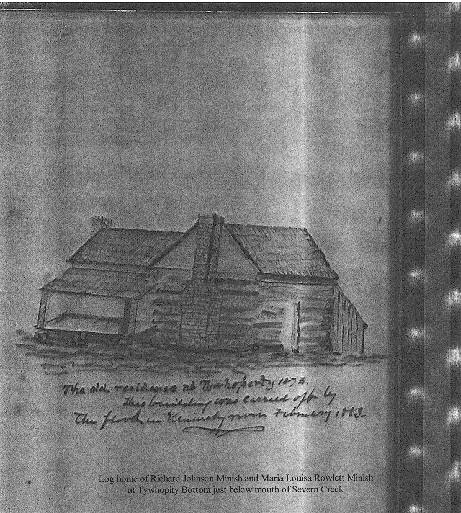 The old residence at Tywhoperty 1873.
This building was carried off by
The flood in Kentucky river February, 1883
Log home of Richard Johnson Minish and Maria Louisa Rowlett Minish
at Tywhopity Bottom just below mouth of Severn Creek